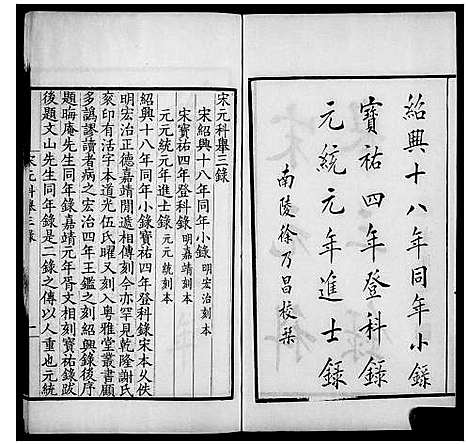 紹興十八年同年小錄
寶祐四年登科錄
元統元年進士錄
南陵徐乃昌校栞
宋元科舉三錄
宋紹興十八年同年小錄明宏治刻本
宋寶祐四年登科錄明嘉靖刻本
元元統元年進士錄元元統刻本
紹興十八年同年小錄寶祐四年登科錄宋本乆佚
明宏治正德嘉靖閒遞相傳刻今亦罕見乾隆謝氏
袌印有活字本道光伍氏㬱又刻入粤雅堂叢書顧
多譌謬讀者病之宏治四年王鑑之刻紹興錄後序
題晦庵先生同年錄嘉靖元年胥文相刻寶祐錄跋
後題文山先生同年錄是二錄之傳以人重也元統
宋元科舉三錄
一